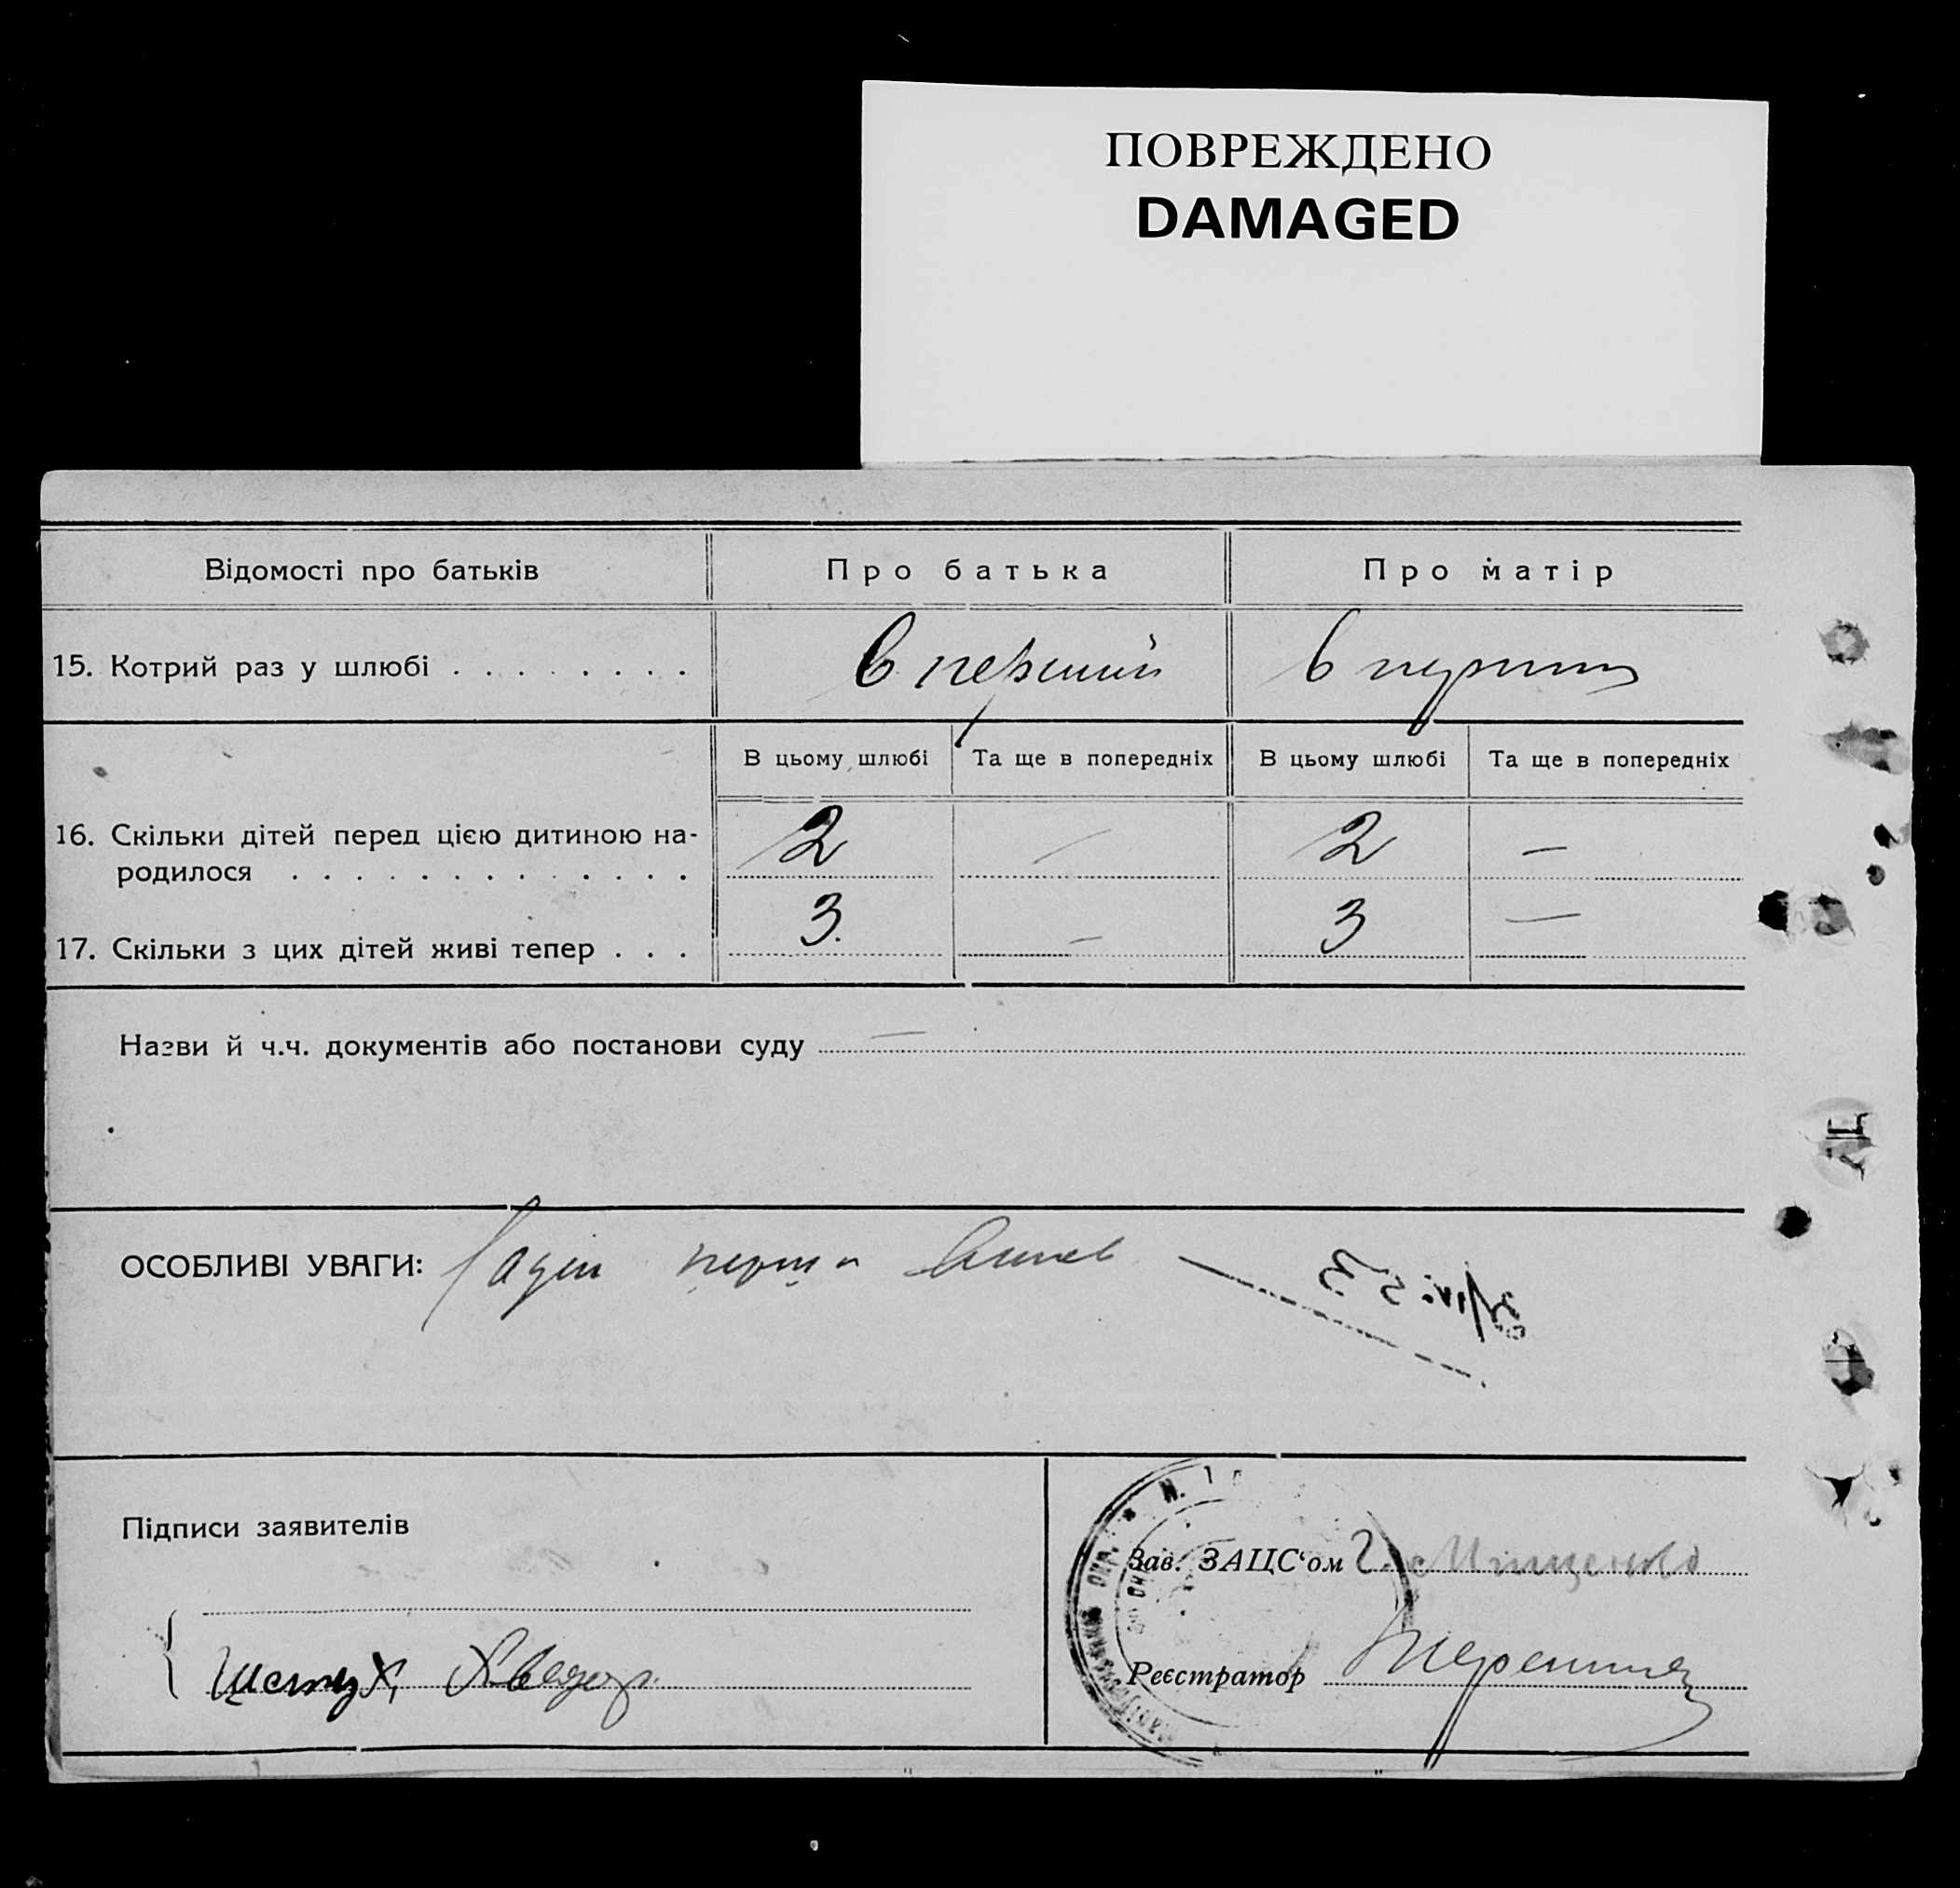 ПОВРЕЖДЕНО
DAMAGED
Відомості про батьків
Про батька
Про матір
15. Котрий раз у шлюбі . . . . . . . .
в перший
в перший
В цьому шлюбі
Та ще в попередніх
В цьому шлюбі
Та ще в попередніх
16. Скільки дітей перед цією дитиною на-
родилося . . . . . . . . . . . . .
2
—
2
—
17. Скільки з цих дітей живі тепер . . .
3.
—
3
—
Назви й ч.ч. документів або постанови суду —
ОСОБЛИВІ УВАГИ:
Підписи заявителів
Зав. ЗАЦС‘ом Г. Мищенко
Шестух
Реєстратор